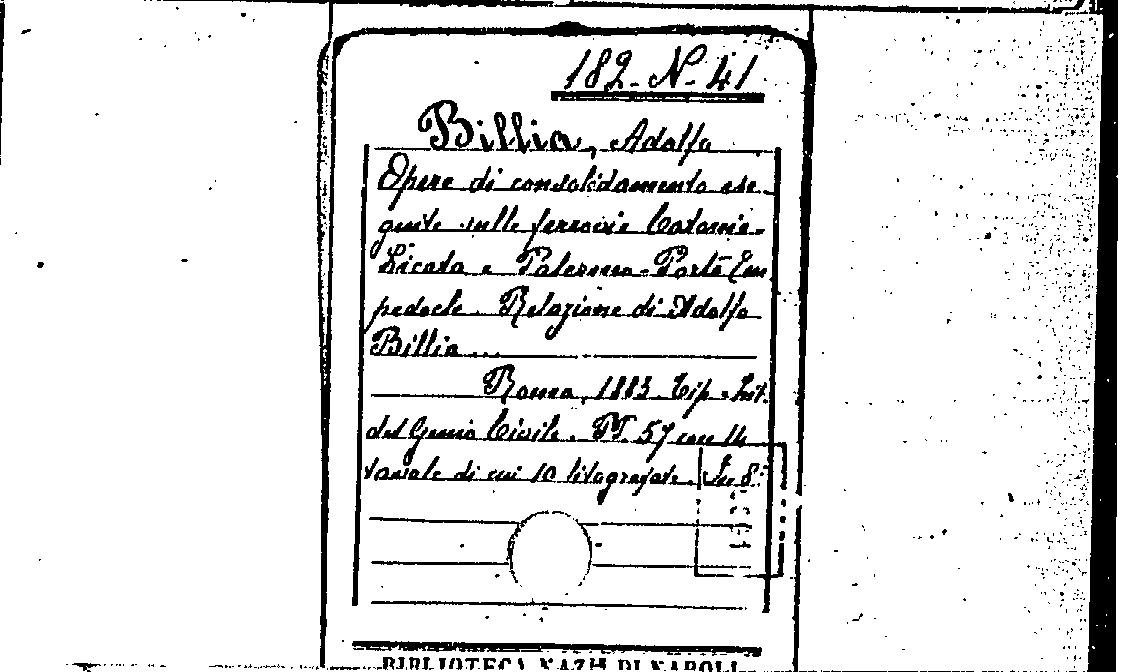 182-N-41
Billia, Adolfo
Opere di consolidamento ese-
guite sulle ferrovie Catania-
Licata e Palermo-Porto Em
pedocle. Relazione di Adolfo
Billia...
Roma, 1883. Tip-Lit.
del Genio Civile. Pp. 57 con 14
tavole di cui 10 litografate. In 8º
BIBLIOTECA NAZ. DI NAPOLI